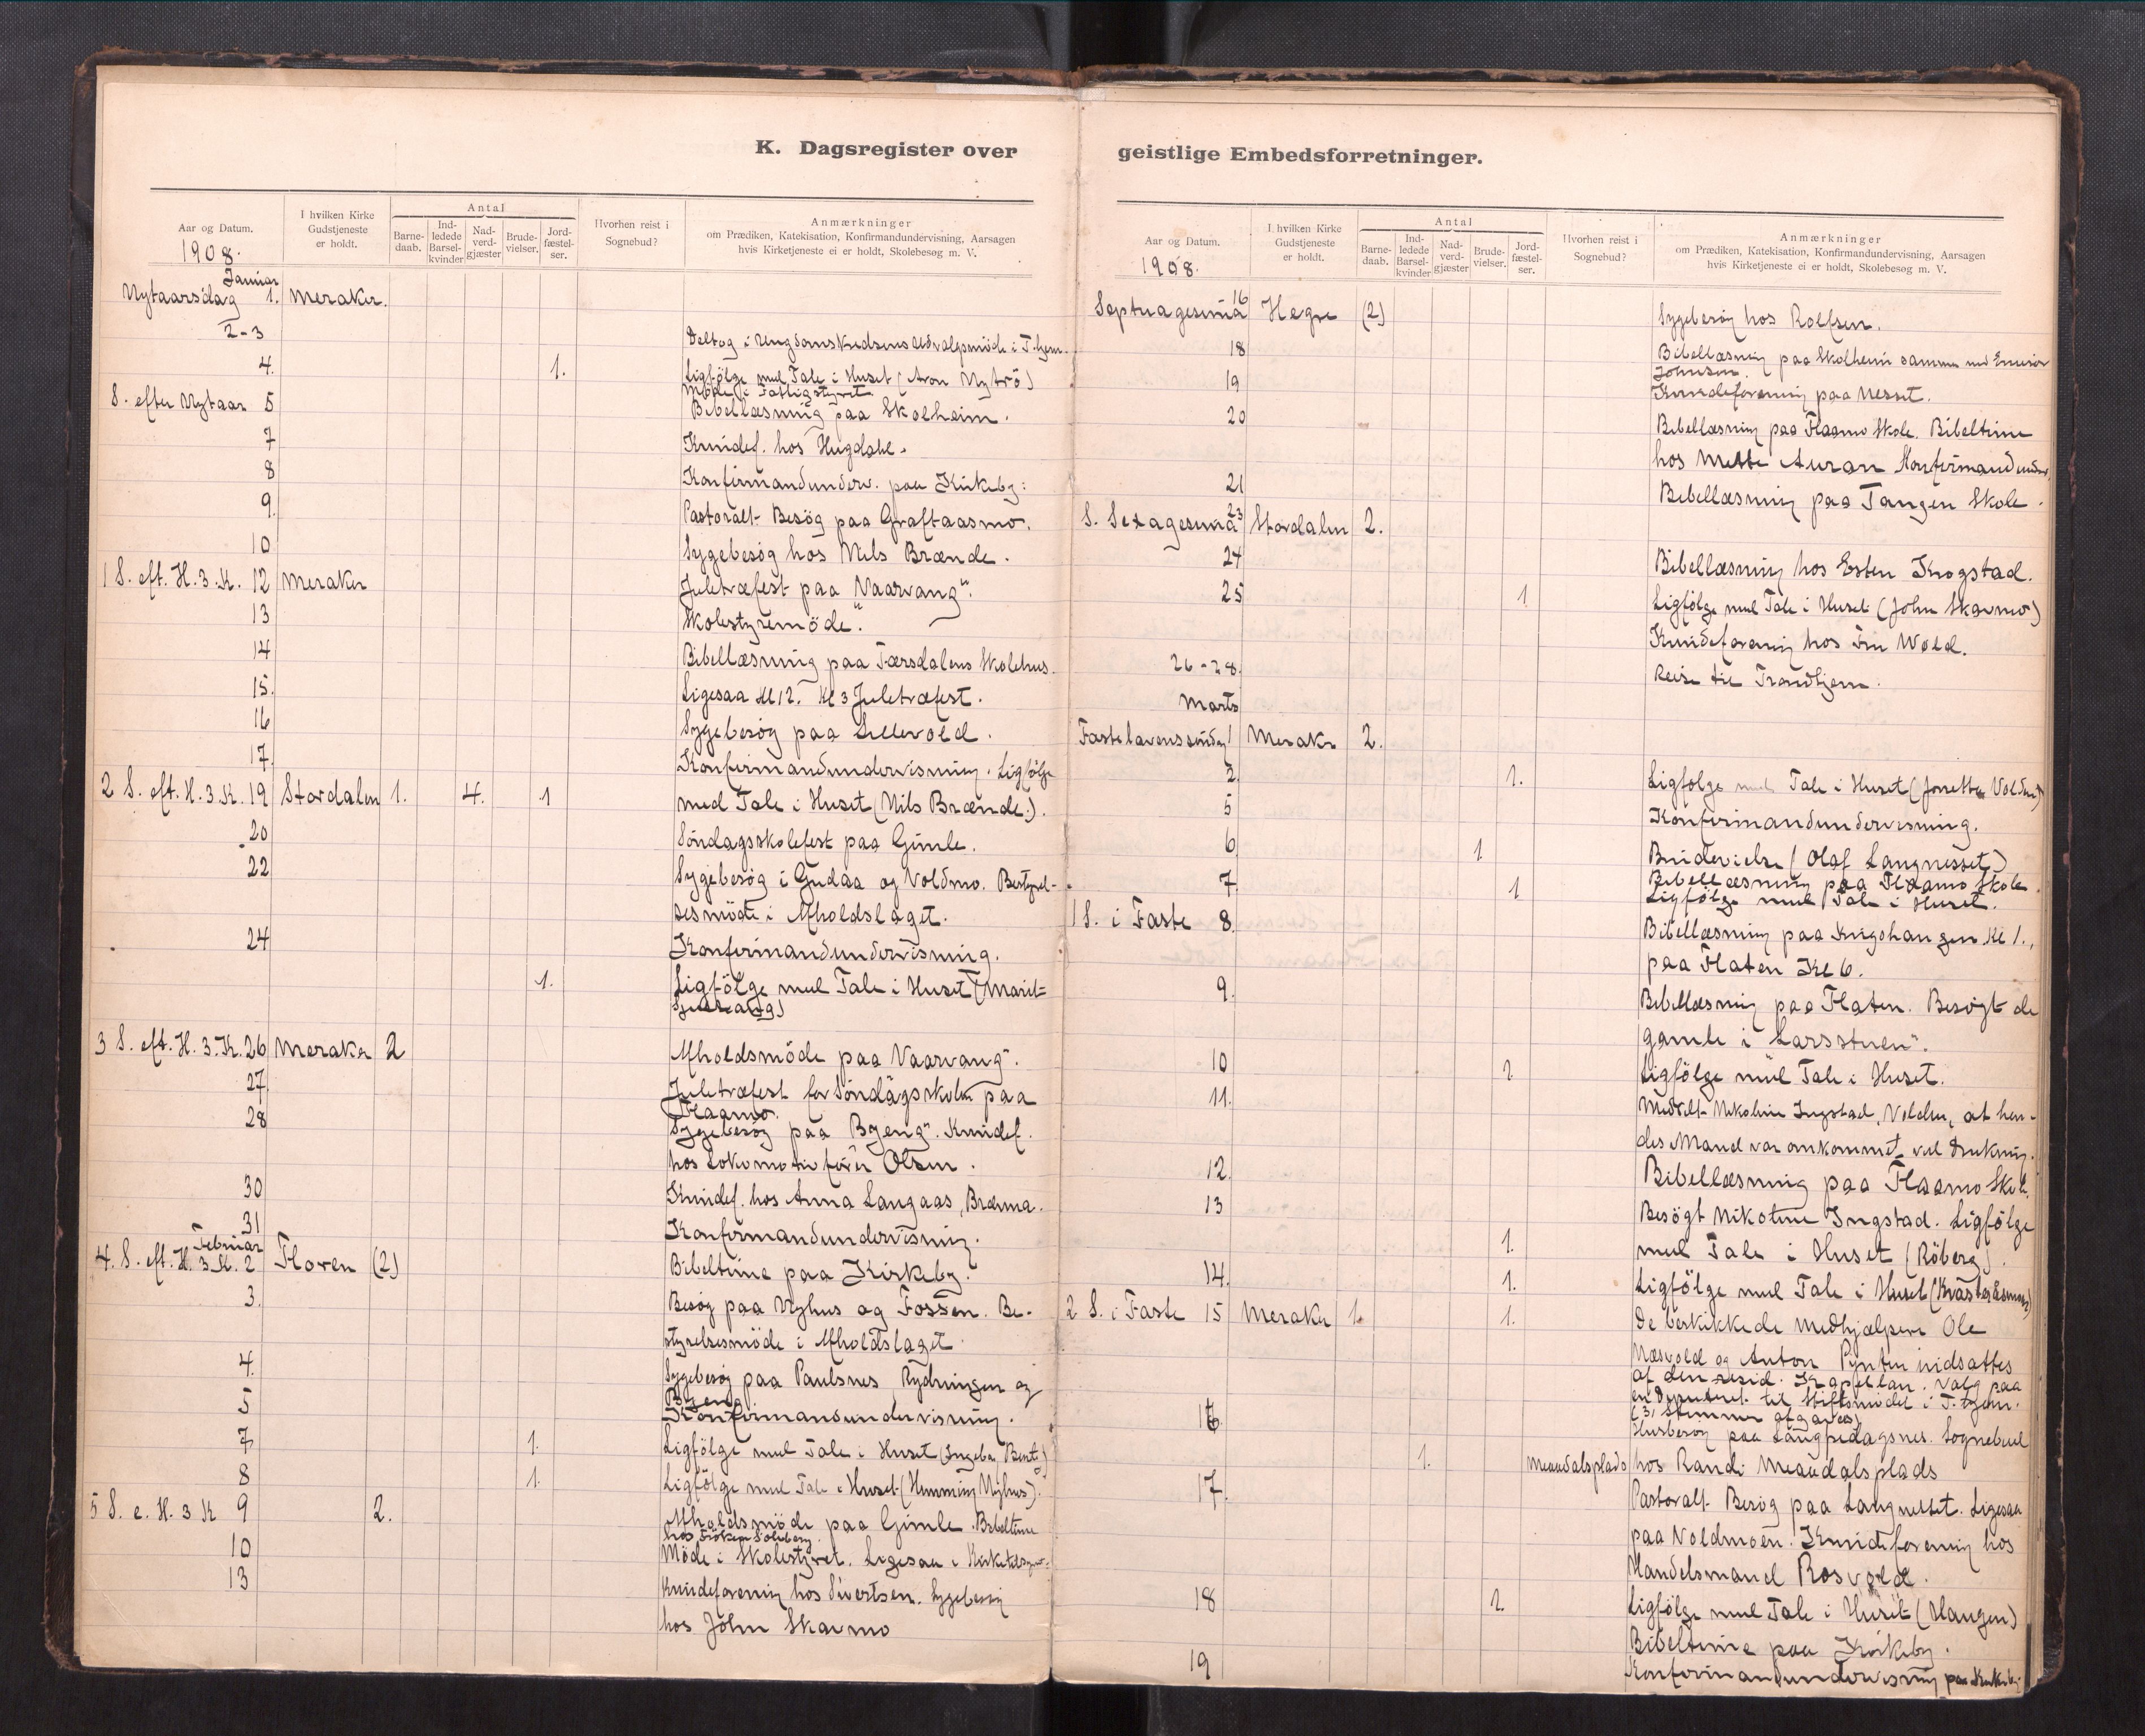 K. Dagsregister over
Aar og Datum.
I hvilken Kirke Gudstjeneste er holdt.
Antal
Barne-daab.
Ind-ledede Barsel-kvinder
Nad-verd-gjæster
Brude-vielser.
Jord-fæstel-ser.
Hvorhen reist i Sognebud?
Anmærkninger
om Prædiken, Katekisation, Konfirmandundervisning, Aarsagen
hvis Kirketjeneste ei er holdt, Skolebesøg m. V.
1908.
Januar
Nytaarsdag 1. Meraker.
2-3 Deltog i Ungdomskredsens Udvalgsmöde i T.hjem.
4. 1. Ligfölge med Tale i Huset (Aron Nytrö)
Möde i Fattigstyret
S. efter Nytaar 5 Bibellæsning paa Skolheim.
7 Kvindef. hos Hugdahl.
8 Konfirmandunderv. paa Kirkeby.
9. Pastoralt Besög paa Graftaasmo.
10 Sygebesög hos Nils Brænde.
1 S. eft. H. 3. K. 12 Meraker Juletræfest paa "Vaarvang".
13 Skolestyremöde.
14 Bibellæsning paa Færsdalens Skolehus.
15. Ligesaa Kl 12. Kl 3 Juletræfest.
16 Sygebesög paa Lillevold.
17. Konfirmandundervisning. Ligfölge
2 S. eft. H. 3. K. 19 Stordalen 1. 4. 1 med Tale i Huset (Nils Brænde).
20 Söndagsskolefest paa Gimle.
22 Sygebesög i Gudaa og Voldmo. Bestyrel-
sesmöde i Afholdslaget.
24 Konfirmandundervisning.
1. Ligfölge med Tale i Huset (Marit
3 S. eft. H. 3. K. 26 Meraker 2 Afholdsmöde paa Vaarvang".
27 Juletræfest for Söndagsskolen paa
Flaamo.
28 Sygebesög paa Byeng". Kvindef.
hos Lokomotivförer Olsen.
30 Kvindef. hos Anna Langaas, Brænna.
31 Konfirmandundervisning.
Februar
4. S. eft. H. 3. K. 2 Floren (2) Bibeltime paa Kirkeby.
3. Besög paa Nyhus og Fossen. Be-
styrelsesmöde i Afholdslaget.
4. Sygebesög paa Paulsnes Rydningen og
Byeng.
5 Konfirmandundervisning.
7 1. Ligfölge med Tale i Huset (Ingebor
8 1. Ligfölge med Tale i Huset (Henning Nyhus).
5 S. e. H. 3 K 9 2. Afholdsmöde paa Gimle. Bibeltime
hos Fröken Solberg.
10 Möde i Skolestyret. Ligesaa i
13 Kvindeforening hos Sivertsen. Sygebesög
hos John Skavmo
geistlige Embedsforretninger.
Aar og Datum.
I hvilken Kirke Gudstjeneste er holdt.
Antal
Barne-daab.
Ind-ledede Barsel-kvinder
Nad-verd-gjæster
Brude-vielser.
Jord-fæstel-ser.
Hvorhen reist i Sognebud?
Anmærkninger
om Prædiken, Katekisation, Konfirmandundervisning, Aarsagen
hvis Kirketjeneste ei er holdt, Skolebesøg m. V.
1908.
Septuagesima 16 Hegre (2) Sygebesög hos Rolfsen.
18 Bibellæsning paa Skolheim sammen med Emissær
Johnsen.
19 Kvindeforening paa Nesset.
20 Bibellæsning paa Flaamo Skole. Bibeltime
hos Mette Auran Konfirmandunderv.
21 Bibellæsning paa Tangen Skole.
S. Sexagesima 23 Stordalen 2.
24 Bibellæsning hos Esten Krogstad.
25 1 Ligfölge med Tale i Huset (John Skavmo)
Kvindeforening hos Fru Wold.
26-28. Reise til Trondhjem.
Marts
Fastelavenssöndag 1 Meraker 2.
2 1. Ligfölge med Tale i Huset (Jonetta Volden)
5 Konfirmandundervisning.
6 1 Brudevielse (Olaf Langnesset)
7 Bibellæsning paa Flaamo Skole.
1 Ligfölge med Tale i Huset.
1 S. i Faste 8. Bibellæsning paa Krogshaugen Kl 1.,
paa Flaten Kl 6.
9. Bibellæsning paa Flaten. Besögt de
gamle i "Larsstuen".
10 2 Ligfölge med Tale i Huset.
11. Meddelt Nikoline Ingstad, Volden, at hen-
des Mand var omkommet ved Drukning.
12. Bibellæsning paa Flaamo Skole.
13 Besögt Nikoline Ingstad. Ligfölge
1. med Tale i Huset (Röberg).
14. 1. Ligfölge med Tale i Huset
2 S. i Faste 15 Meraker 1. 1. De beskikkede Medhjælpere Ole
Næsvold og Anton Pynten indsattes
af den resid. Kapellan. Valg paa
en Deputeret til Stiftsmödet i T.hjem.
(31 Stemmer afgaves)
16 Husbesög paa Langpedagsnes. Sognebud
1. Meaudalsplads hos Randi Meaudalsplads
17. Pastoralt Besög paa Langnesset. Ligesaa
paa Voldmoen. Kvindeforening hos
Handelsmand Rosvold.
18 2 Ligfölge med Tale i Huset (Haugen)
Bibeltime paa Kirkeby.
19 Konfirmandundervisning paa Kirkeby